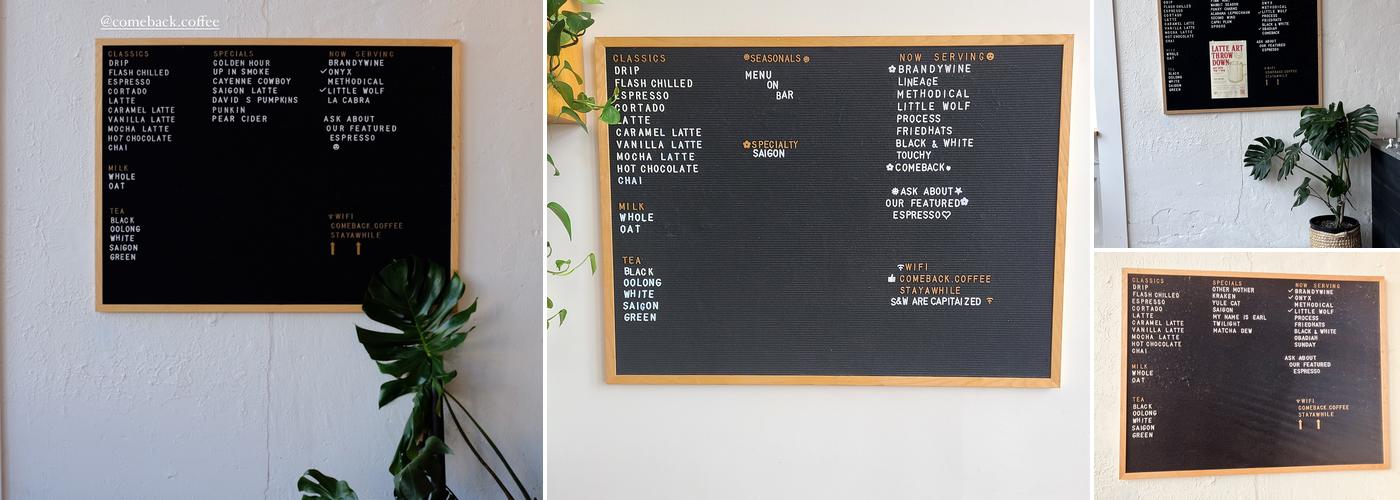 @comeback.coffee
CLASSICS
DRIP
FLASH CHILLED
ESPRESSO
CORTADO
LATTE
CARAMEL LATTE
VANILLA LATTE
MOCHA LATTE
HOT CHOCOLATE
CHAI
MILK
WHOLE
OAT
TEA
BLACK
OOLONG
WHITE
SAIGON
GREEN
SPECIALS
GOLDEN HOUR
UP IN SMOKE
CAYENNE COWBOY
SAIGON LATTE
DAVID S PUMPKINS
PUNKIN
PEAR CIDER
NOW SERVING
✓ONYX
METHODICAL
✓LITTLE WOLF
LA CABRA
ASK ABOUT
OUR FEATURED
ESPRESSO
WIFI
COMEBACK.COFFEE
STAYAWHILE
CLASSICS
DRIP
FLASH CHILLED
ESPRESSO
CORTADO
LATTE
CARAMEL LATTE
VANILLA LATTE
MOCHA LATTE
HOT CHOCOLATE
CHAI
MILK
WHOLE
OAT
TEA
BLACK
OOLONG
WHITE
SAIGON
GREEN
SEASONALS
MENU
ON
BAR
SPECIALTY
SAIGON
NOW SERVING
BRANDYWINE
LINEAGE
METHODICAL
LITTLE WOLF
PROCESS
FRIEDHATS
BLACK & WHITE
TOUCHY
COMEBACK
ASK ABOUT
OUR FEATURED
ESPRESSO
WIFI
COMEBACK.COFFEE
STAYAWHILE
S&W ARE CAPITAIZED
FLASH CHILLED
ESPRESSO
CORTADO
LATTE
CARAMEL LATTE
VANILLA LATTE
MOCHA LATTE
HOT CHOCOLATE
CHAI
MILK
WHOLE
OAT
TEA
BLACK
OOLONG
WHITE
SAIGON
GREEN
LATTE ART
THROW
DOWN
METHODICAL
✓LITTLE WOLF
PROCESS
FRIEDHATS
BLACK & WHITE
OBADIAH
COMEBACK
ASK ABOUT
OUR FEATURED
ESPRESSO
WIFI
COMEBACK.COFFEE
STAYAWHILE
CLASSICS
DRIP
FLASH CHILLED
ESPRESSO
CORTADO
LATTE
CARAMEL LATTE
VANILLA LATTE
MOCHA LATTE
HOT CHOCOLATE
CHAI
MILK
WHOLE
OAT
TEA
BLACK
OOLONG
WHITE
SAIGON
GREEN
SPECIALS
OTHER MOTHER
KRAKEN
YULE CAT
SAIGON
MY NAME IS EARL
TWILIGHT
MATCHA DEW
NOW SERVING
✓BRANDYWINE
✓ONYX
METHODICAL
✓LITTLE WOLF
PROCESS
FRIEDHATS
BLACK & WHITE
OBADIAH
SUNDAY
ASK ABOUT
OUR FEATURED
ESPRESSO
WIFI
COMEBACK.COFFEE
STAYAWHILE